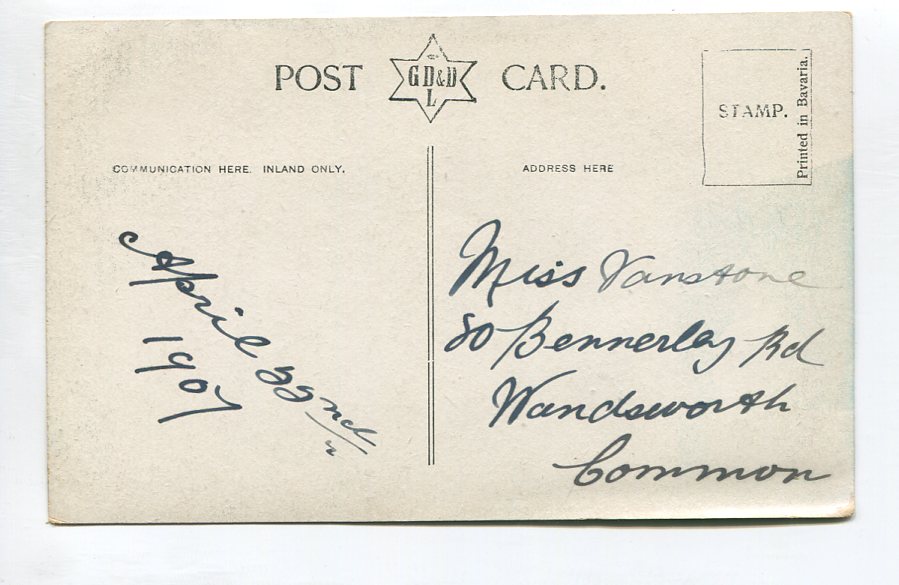 POST CARD.
GD&D
L
STAMP.
Printed in Bavaria.
COMMUNICATION HERE. INLAND ONLY.
ADDRESS HERE
April 22nd
1907
Miss Vanstone
80 Bennerley Rd
Wandsworth
Common